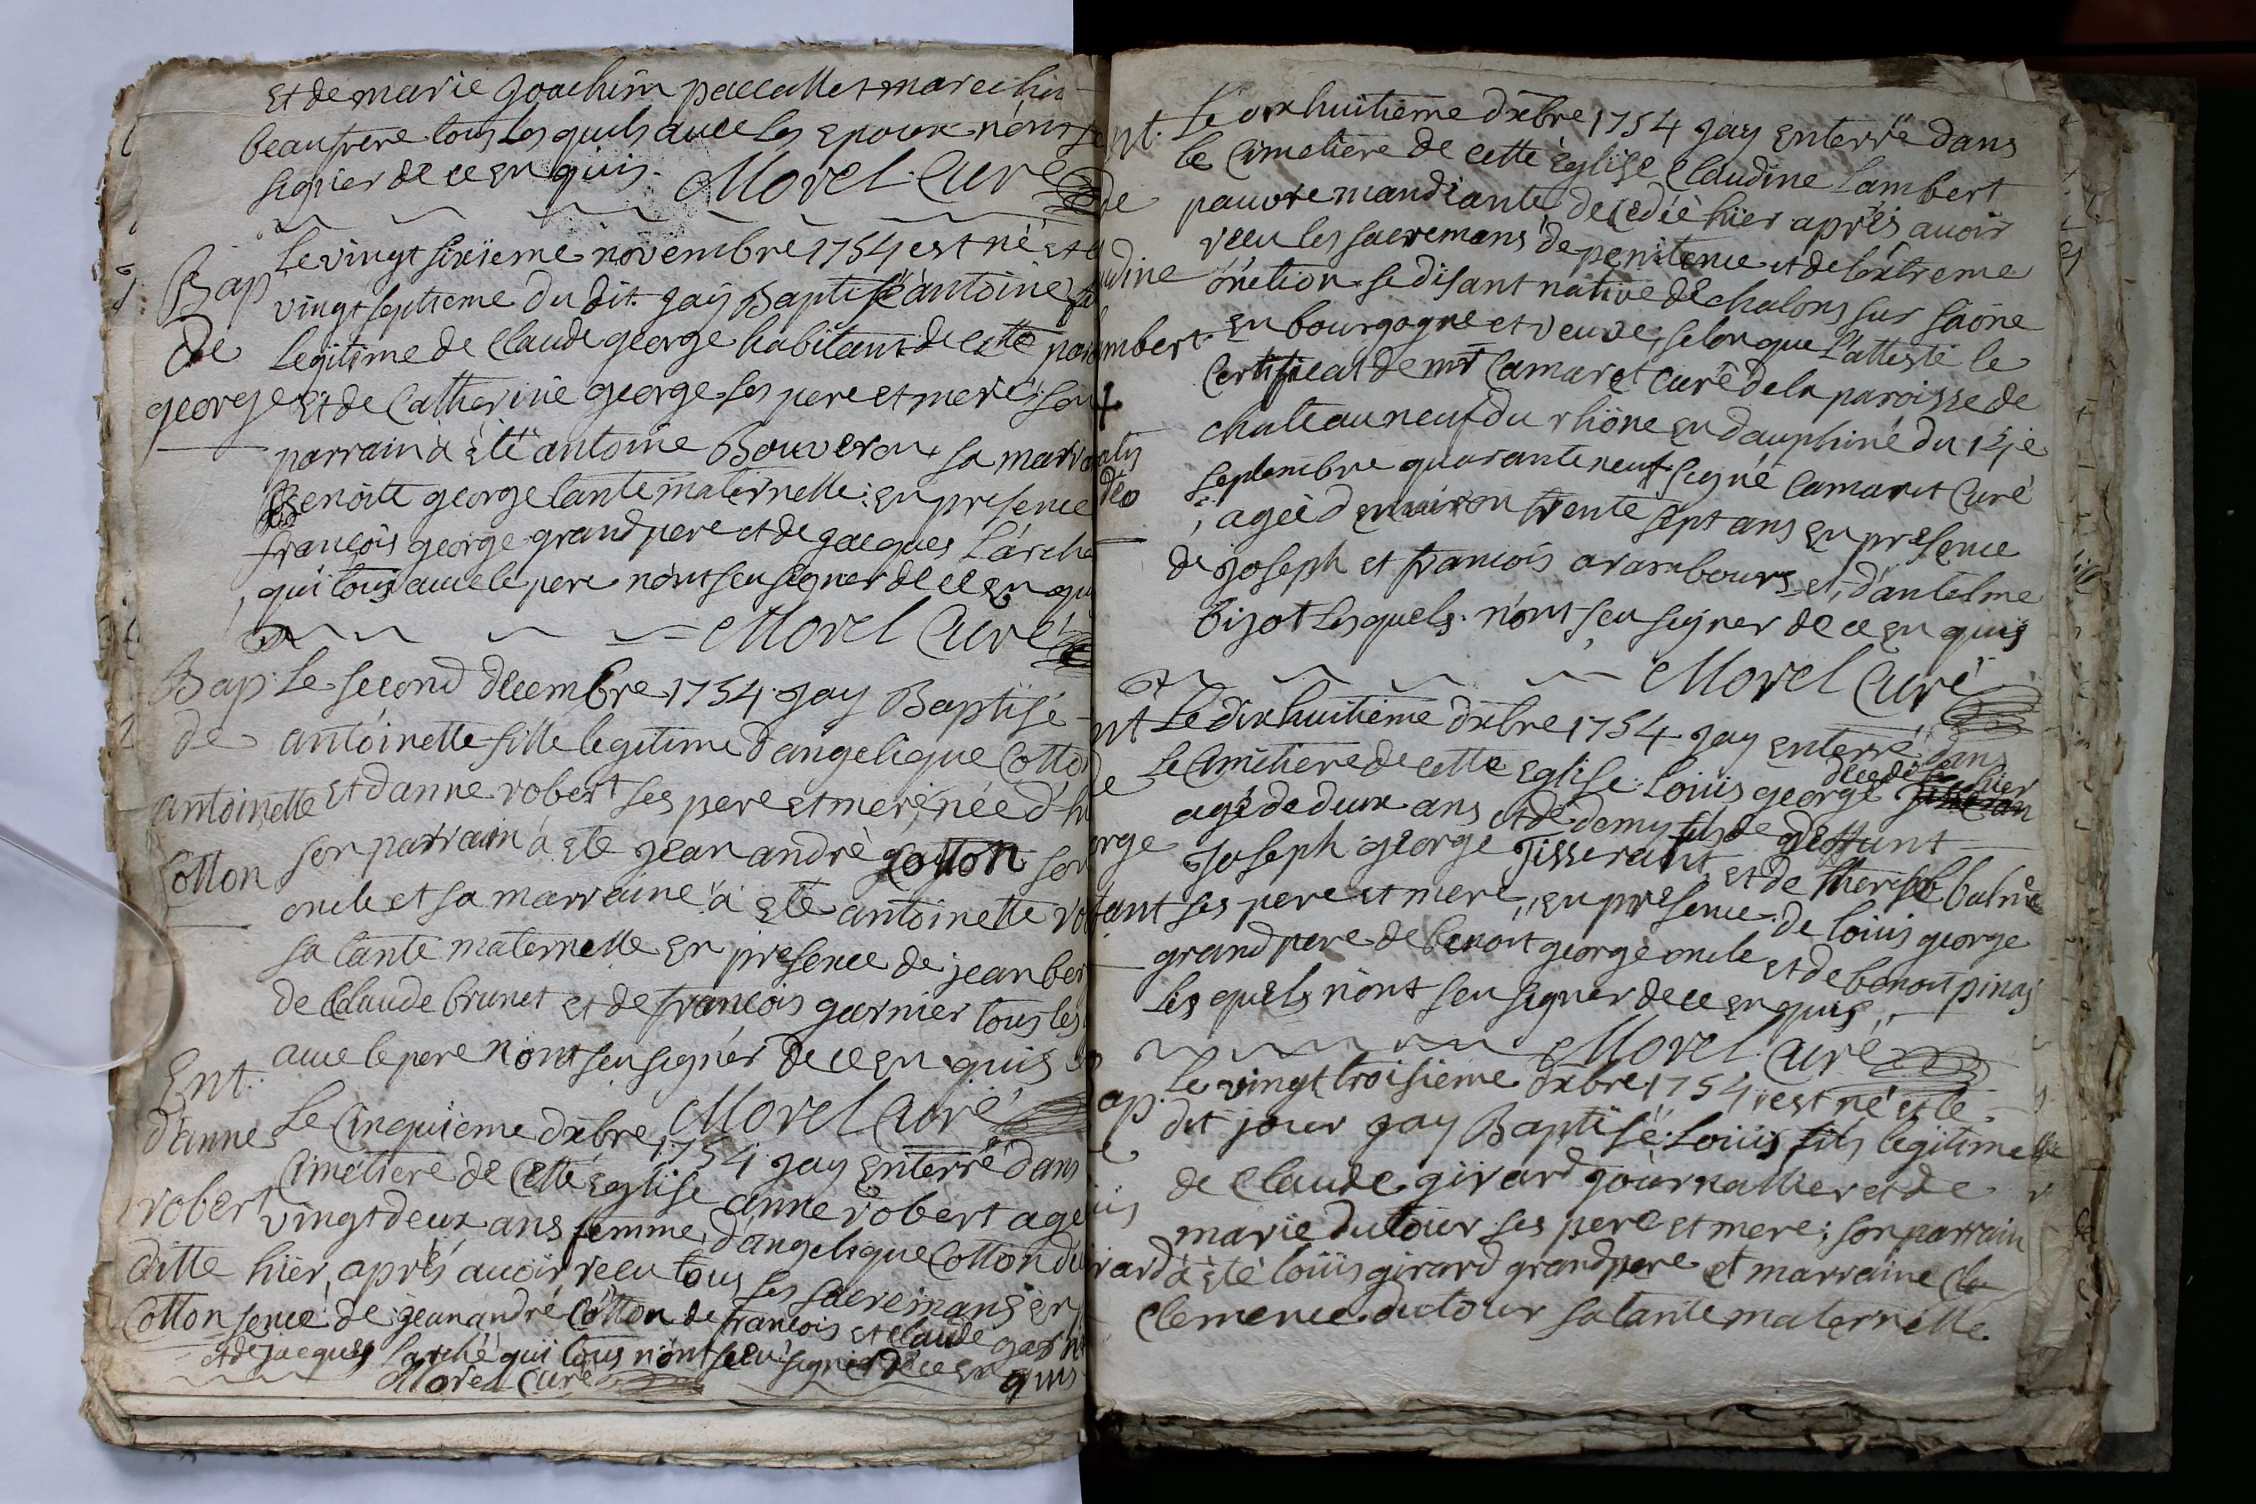 et de marie Joachim paccallet marechin
beaufrere tous les quels avec les epoux nont
signer de ce enquis. Morel Curé
Bap Le vingt sixieme novembre 1754 est né et
vingt septieme du dit jay Baptisé antoine
de Legitime de Claude george habitant de cette
george et de Catherine george ses pere et mere: son
parrain à été antoine Bouveron sa
Benoite george tante maternelle: en presence
francois george grand pere et de jacques Larché
qui tous avec le pere nont seu signer de ce en
Morel Curé
Bap. Le second decembre 1754 jay Baptisé
de antoinette fille legitime dangelique
antoinette et danne robert ses pere et mere, née
Cotton son parrain à eté jean andrè Cotton son
oncle et sa marraine à eté antoinette
sa tante maternelle en presence de jean
de Claude brunet et de francois garnier tous
avec le pere nont seu signer de ce en quis
Morel Curé
Ent.
d'anne Le Cinquieme dxbre 1754 jay enterré dans
Cimetiere de Cette Eglise anne robert
robert vingt deux ans femme d'angelique Cotton
ditte hier après avoir reçu tous les sacremans en
Cotton sence de jean andré Cotton de francois et claude
et de jacques Larché qui tous nont seu signer de ce en
Morel Curé quis
Le dix huitième dxbre 1754 jay enterré dans
le Cimetiere de cette Eglise Claudine Lambert
pauvre mandiante decedée hier après avoir
reçu les sacremens de penitence et de l'extreme
onction se disant native de chalons sur saône
en bourgogne et veuve, selon que l'atteste le
Certificat de mr Camaret Curé de la paroisse de
chateauneuf du rhône en dauphiné du
septembre quarante neuf signé Camaret Curé
agée d'environ trente sept ans en presence
de joseph et francois arambours et d'antelme
bizot les quels nont seu signer de ce en quis
Morel Curé
Le dix huitieme dxbre 1754 jay enterré dans
le Cimetiere de cette Eglise: Loüis george decedé hier
agé de deux ans et demy fils de deffunt
Joseph george Tisserant et de
ses pere et mere, en presence de loüis george
grand pere de benoit george oncle et de benoit pinas
les quels nont seu signer de ce en quis
Morel Curé
Le vingt troisieme dxbre 1754 est né et le
dit jour jay Baptisé: Loüis fils legitime
de Claude girard journallier et de
marie dutour ses pere et mere: son parrain
à été loüis girard grand pere et marraine
Clemence dutour sa tante maternelle.